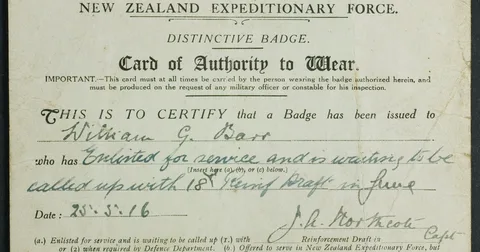 NEW ZEALAND EXPEDITIONARY FORCE.
DISTINCTIVE BADGE.
Card of Authority to Wear.
IMPORTANT.—This card must at all times be carried by the person wearing the badge authorized herein, and
must be produced on the request of any military officer or constable for his inspection.
THIS IS TO CERTIFY that a Badge has been issued to
William G. Barr
who has Enlisted for service and is waiting to be
(Insert here (a), (b), or (c) below.)
called up with 18th Reinf Draft in June
Date : 25.5.16
J. A. Northcote Capt
(a). Enlisted for service and is waiting to be called up (1.) with Reinforcement Draft in
or (2) when required by Defence Department. (b). Offered to serve in New Zealand Expeditionary Force, but